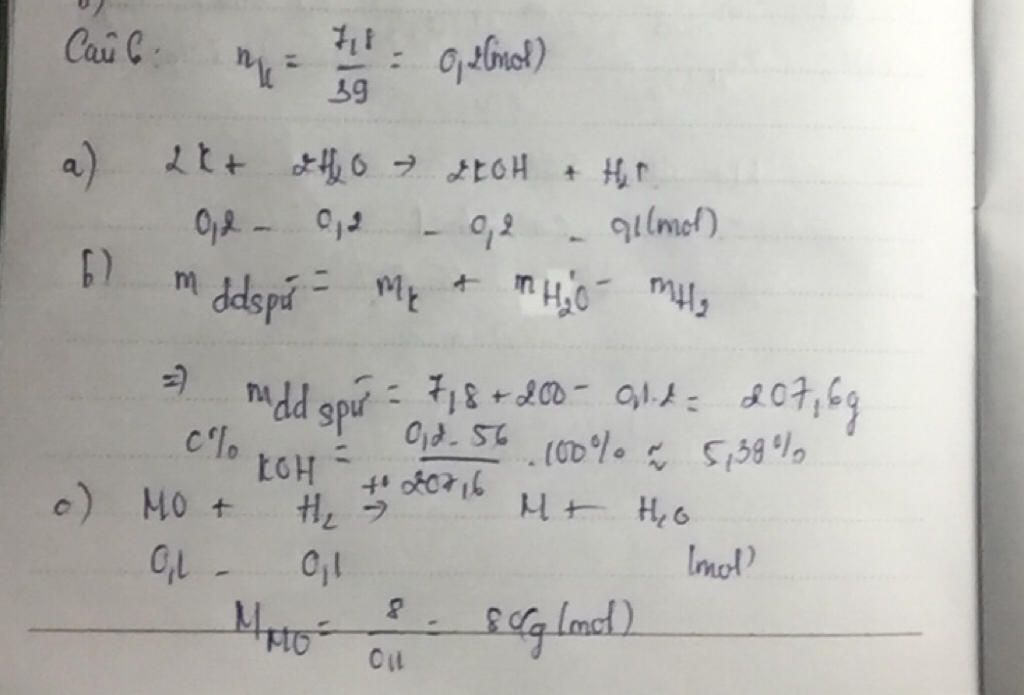 Câu 6: nk = 7,8/39 = 0,2(mol)
a) 2K + 2H2O → 2KOH + H2↑
0,2 - 0,2 - 0,2 - 0,1(mol)
b) m ddspứ = mk + mH2O - mH2
=> mdd spứ = 7,8 + 200 - 0,1.2 = 207,6g
C% KOH = 0,2.56/207,6 .100% ≈ 5,39%
c) MO + H2 →to M + H2O
0,1 - 0,1 (mol)
M MO = 8/0,1 = 80(g/mol)